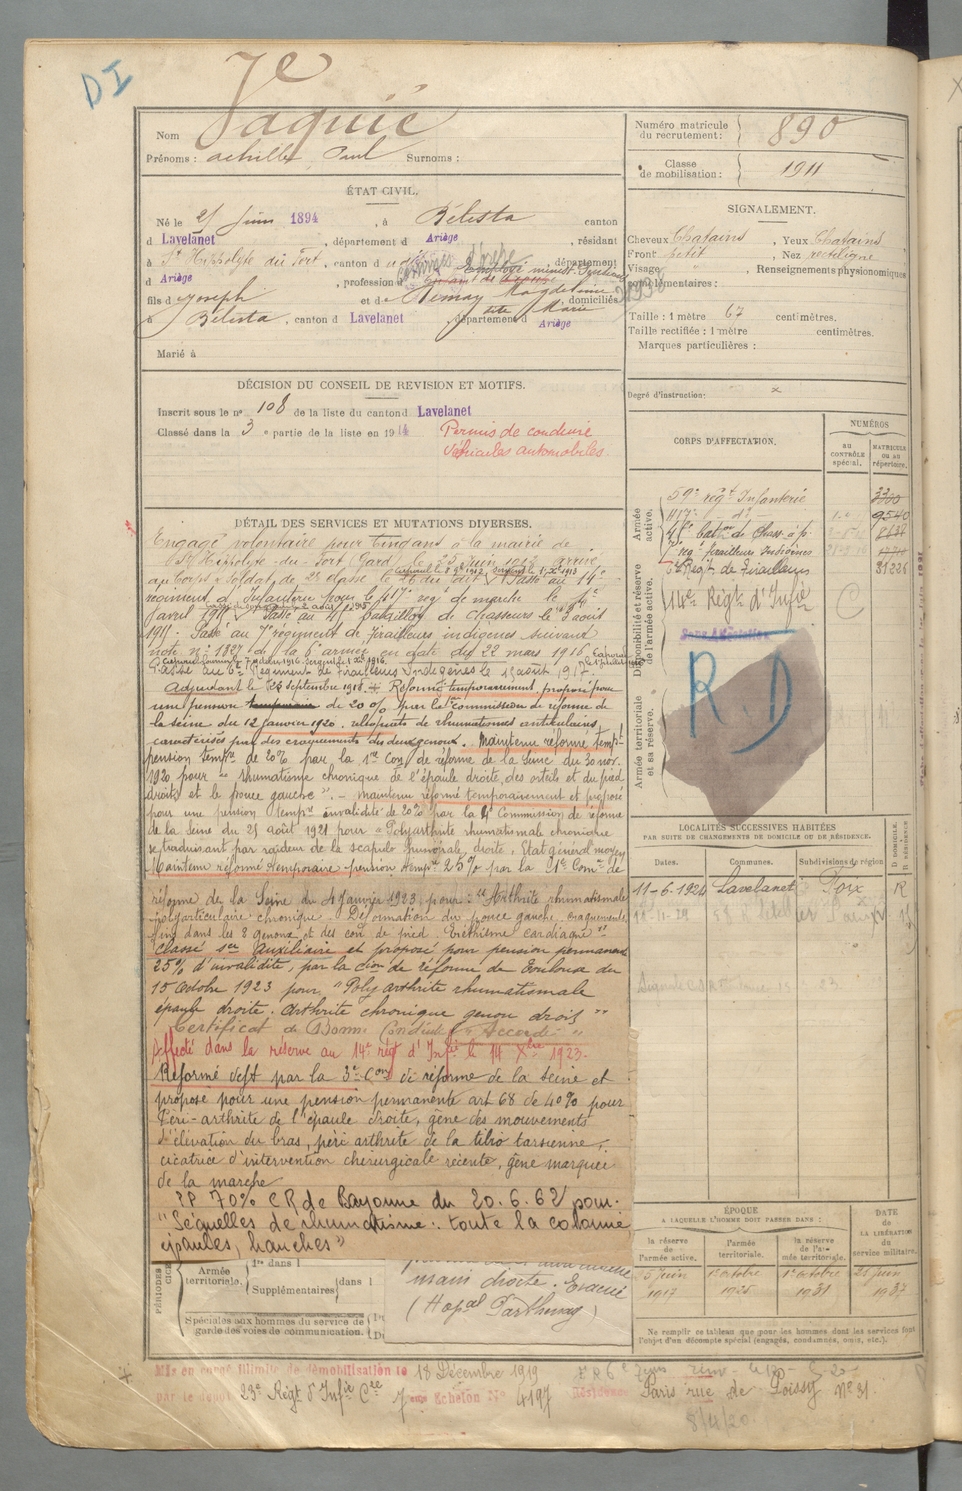 DI
Nom Vaquié
Prénoms : Achille Paul Surnoms :
ÉTAT CIVIL.
Né le 25 Juin 1894, à Bélesta canton
d Lavelanet, département d Ariège, résidant
à St Hippolyte du Fort, canton d département
d Ariège, profession d
fils d Joseph et d Magdeleine, domiciliés
dite Marie
à Bélesta, canton d Lavelanet, département d Ariège
Marié à
DÉCISION DU CONSEIL DE REVISION ET MOTIFS.
Inscrit sous le n° 108 de la liste du canton d Lavelanet
Classé dans la 3e partie de la liste en 1914
Permis de conduire
véhicules automobiles.
DÉTAIL DES SERVICES ET MUTATIONS DIVERSES.
Engagé volontaire pour cinq ans à la mairie de
St Hippolyte-du-Fort, Gard, le 25 juin 1912 arrivé
au Corps & Soldat de 2e classe le 26 du dit
Passé au 14e
régiment d'Infanterie
pour le 117e régt de marche le
avril 1915
Passé au bataillon de Chasseurs le 3 août
1915. Passé au 7e régiment de tirailleurs indigènes suivant
note n° 1827 de la 6e armée en date du 22 mars 1916.
Passé au 6e Régiment de Tirailleurs Indigènes le 15 août 1917.
Adjudant le septembre 1918. Réformé temporairement proposé pour
une pension de 20% par la commission de réforme de
la Seine du 12 janvier 1920. reliquats de rhumatismes articulaires,
caractérisés par des craquements des deux genoux. Maintenu réformé tempt
pension tempre de 20% par la 1re Con de réforme de la Seine du 30 nov.
1920 pour "rhumatisme chronique de l'épaule droite, des orteils et du pied
droits et le pouce gauche". - Maintenu réformé temporairement et proposé
pour une pension tempre invalidité de 20% par la 4e Commission de réforme
de la Seine du 25 août 1921 pour "Polyarthrite rhumatismale chronique
se traduisant par raideur de la scapulo humérale droite. Etat général moyen
Maintenu réformé temporaire pension tempre 25% par la 1re Comon de
réforme de la Seine du 4 janvier 1923 pour: "Arthrite rhumatismale
polyarticulaire chronique - Déformation du pouce gauche, craquements
fins dans les 2 genoux et des cou de pied. Eréthisme cardiaque"
Classé sce Auxiliaire et proposé pour pension permanente
25% d'invalidité, par la cion de réforme de Toulouse du
15 Octobre 1923 pour "Polyarthrite rhumatismale
épaule droite. Arthrite chronique genou droit"
Certificat de Bonne Conduite "Accordé"
Affecté dans la réserve au 14e régt d'Infie le 14 Xbre 1923.
Réformé déft par la 3e Con de réforme de la Seine et
proposé pour une pension permanente art 68 de 40% pour
Péri-arthrite de l'épaule droite, gêne des mouvements
d'élévation du bras, péri arthrite de la tibio tarsienne,
cicatrice d'intervention chirurgicale récente, gêne marquée
de la marche
PP 70% CR de Bayonne du 20.6.62 pour:
"Séquelles de rhumatisme: toute la colonne
épaules, hanches"
PÉRIODES
Armée territoriale. 1re dans l
Supplémentaires dans l
Spéciales aux hommes du service de garde des voies de communication.
main droite. Evacué
(Hopal Parthenay)
Mis en congé illimité de démobilisation le 18 Décembre 1919
par le dépôt 23e Régt d'Infie Cale 7eme Echelon N° 4197
Résidence Paris rue de Poissy N° 31.
8/4/20
Numéro matricule du recrutement : 890
Classe de mobilisation : 1911
SIGNALEMENT.
Cheveux Chatains, Yeux Chatains
Front Petit, Nez rectiligne
Visage, Renseignements physionomiques
complémentaires :
Taille : 1 mètre 67 centimètres.
Taille rectifiée : 1 mètre centimètres.
Marques particulières :
Degré d'instruction : x
CORPS D'AFFECTATION.
NUMÉROS
AU CONTRÔLE spécial.
MATRICULE OU AU répertoire.
Armée active.
59e régt Infanterie 3300
117e - do - 9540
Baton de Chass. à p.
7e régt Tirailleurs Indigènes
6e Régt de Tirailleurs 31226
Disponibilité et réserve de l'armée active.
14e Régt d'Infie C
Sans Affectation
R.D
Armée territoriale et sa réserve.
LOCALITÉS SUCCESSIVES HABITÉES
PAR SUITE DE CHANGEMENTS DE DOMICILE OU DE RÉSIDENCE.
Dates. Communes. Subdivisions de région D DOMICILE. R RÉSIDENCE
11-6-1924 Lavelanet Foix R
ÉPOQUE
A LAQUELLE L'HOMME DOIT PASSER DANS :
DATE DE LA LIBÉRATION du service militaire.
la réserve de l'armée active. l'armée territoriale. la réserve de l'armée territoriale.
25 Juin 1917 1er Octobre 1925 1er Octobre 1931 25 Juin 1937
Ne remplir ce tableau que pour les hommes dont les services font l'objet d'un décompte spécial (engagés, condamnés, omis, etc.).